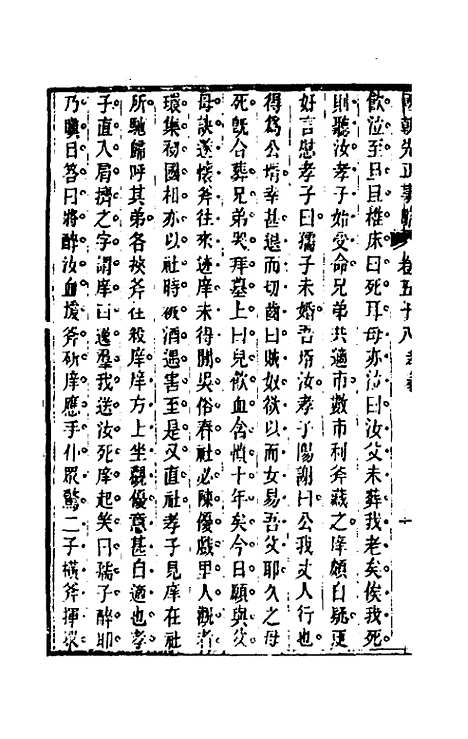 國朝先正事略 卷五十八 孝義
飲泣至旦且椎床曰死耳母亦泣曰汝父未葬我老矣俟我死
則聽汝孝子始受命兄弟共適市數市利斧藏之庠頗自疑更
好言慰孝子曰孺子未婚吾壻汝孝子陽謝曰公我丈人行也
得爲公壻幸甚退而切齒曰賊奴欲以而女易吾父耶久之母
死旣合葬兄弟哭拜墓上曰兒飲血含憤十年矣今日願與父
母訣遂懷斧往來迹庠未得閒吳俗春社必陳優戲里人觀者
環集初國相亦以社時被酒遇害至是又直社孝子見庠在社
所馳歸呼其弟各挾斧往殺庠庠方上坐觀優意甚自適也孝
子直入肩擠之字謂庠曰逸羣我送汝死庠起笑曰孺子醉耶
乃嚷曰答曰將醉汝血援斧斫庠應手仆眾驚二子橫斧揮眾